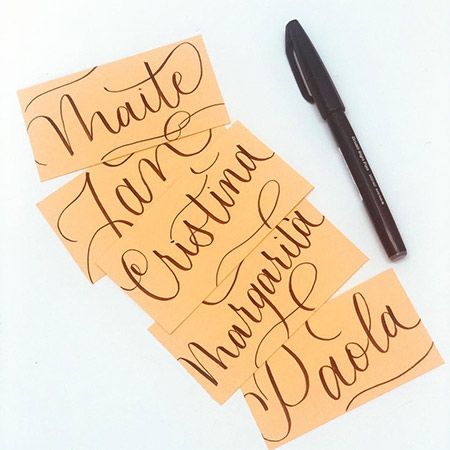 Maite
Ian
Cristina
Margarita
Paola